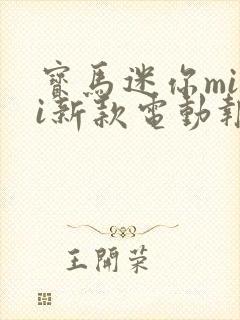 寶馬迷你mi
i新款電動報
王開荣